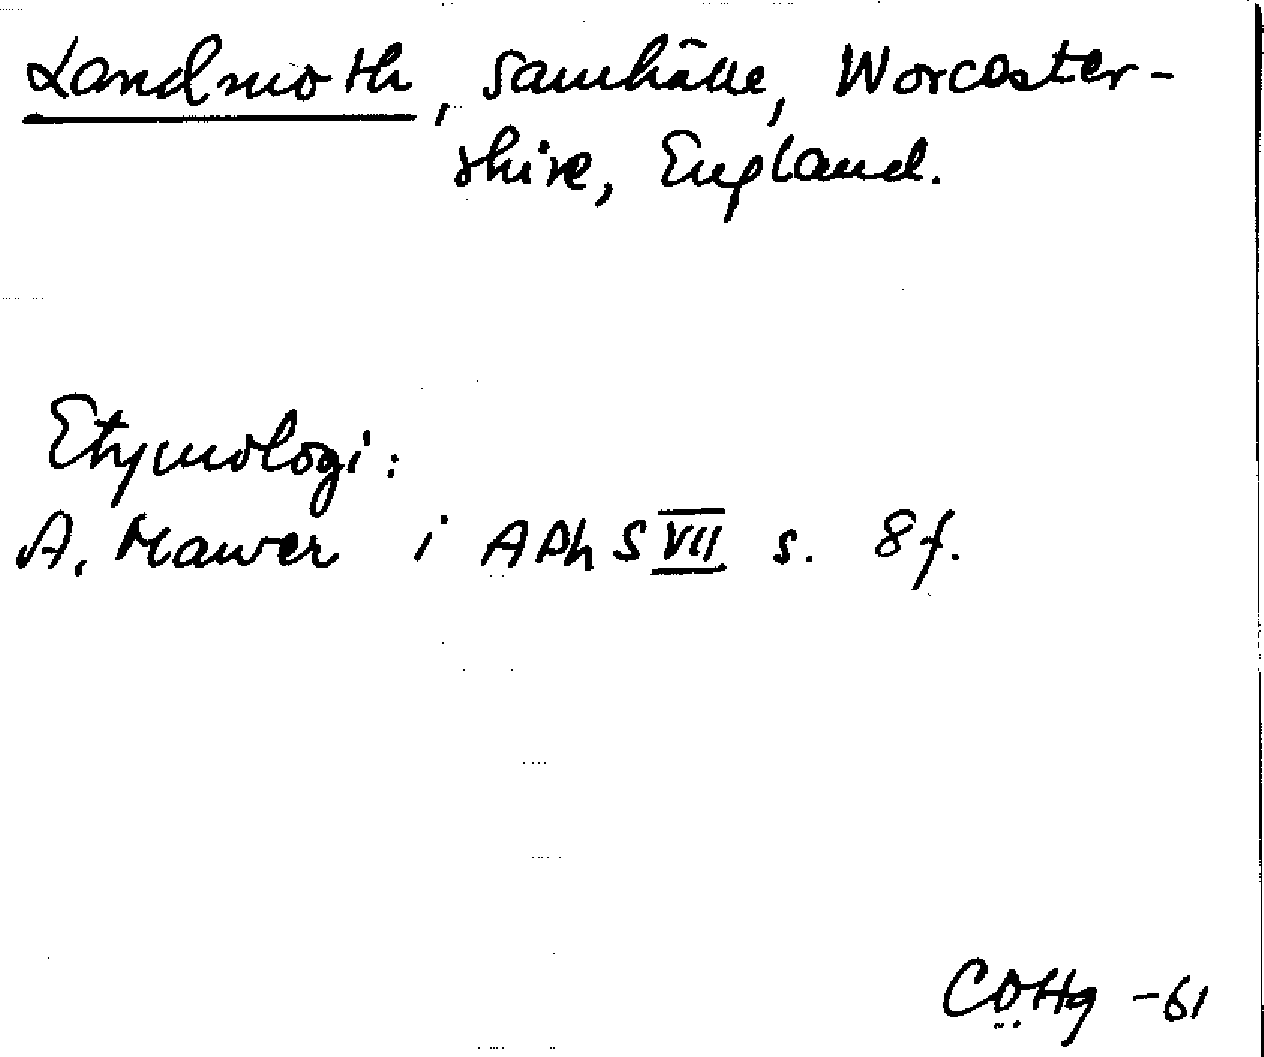 Landmoth, samhälle, Worcester-
shire, England.
Etymologi:
A. Mawer i APhS VII s. 8 f.
CÖHg -61